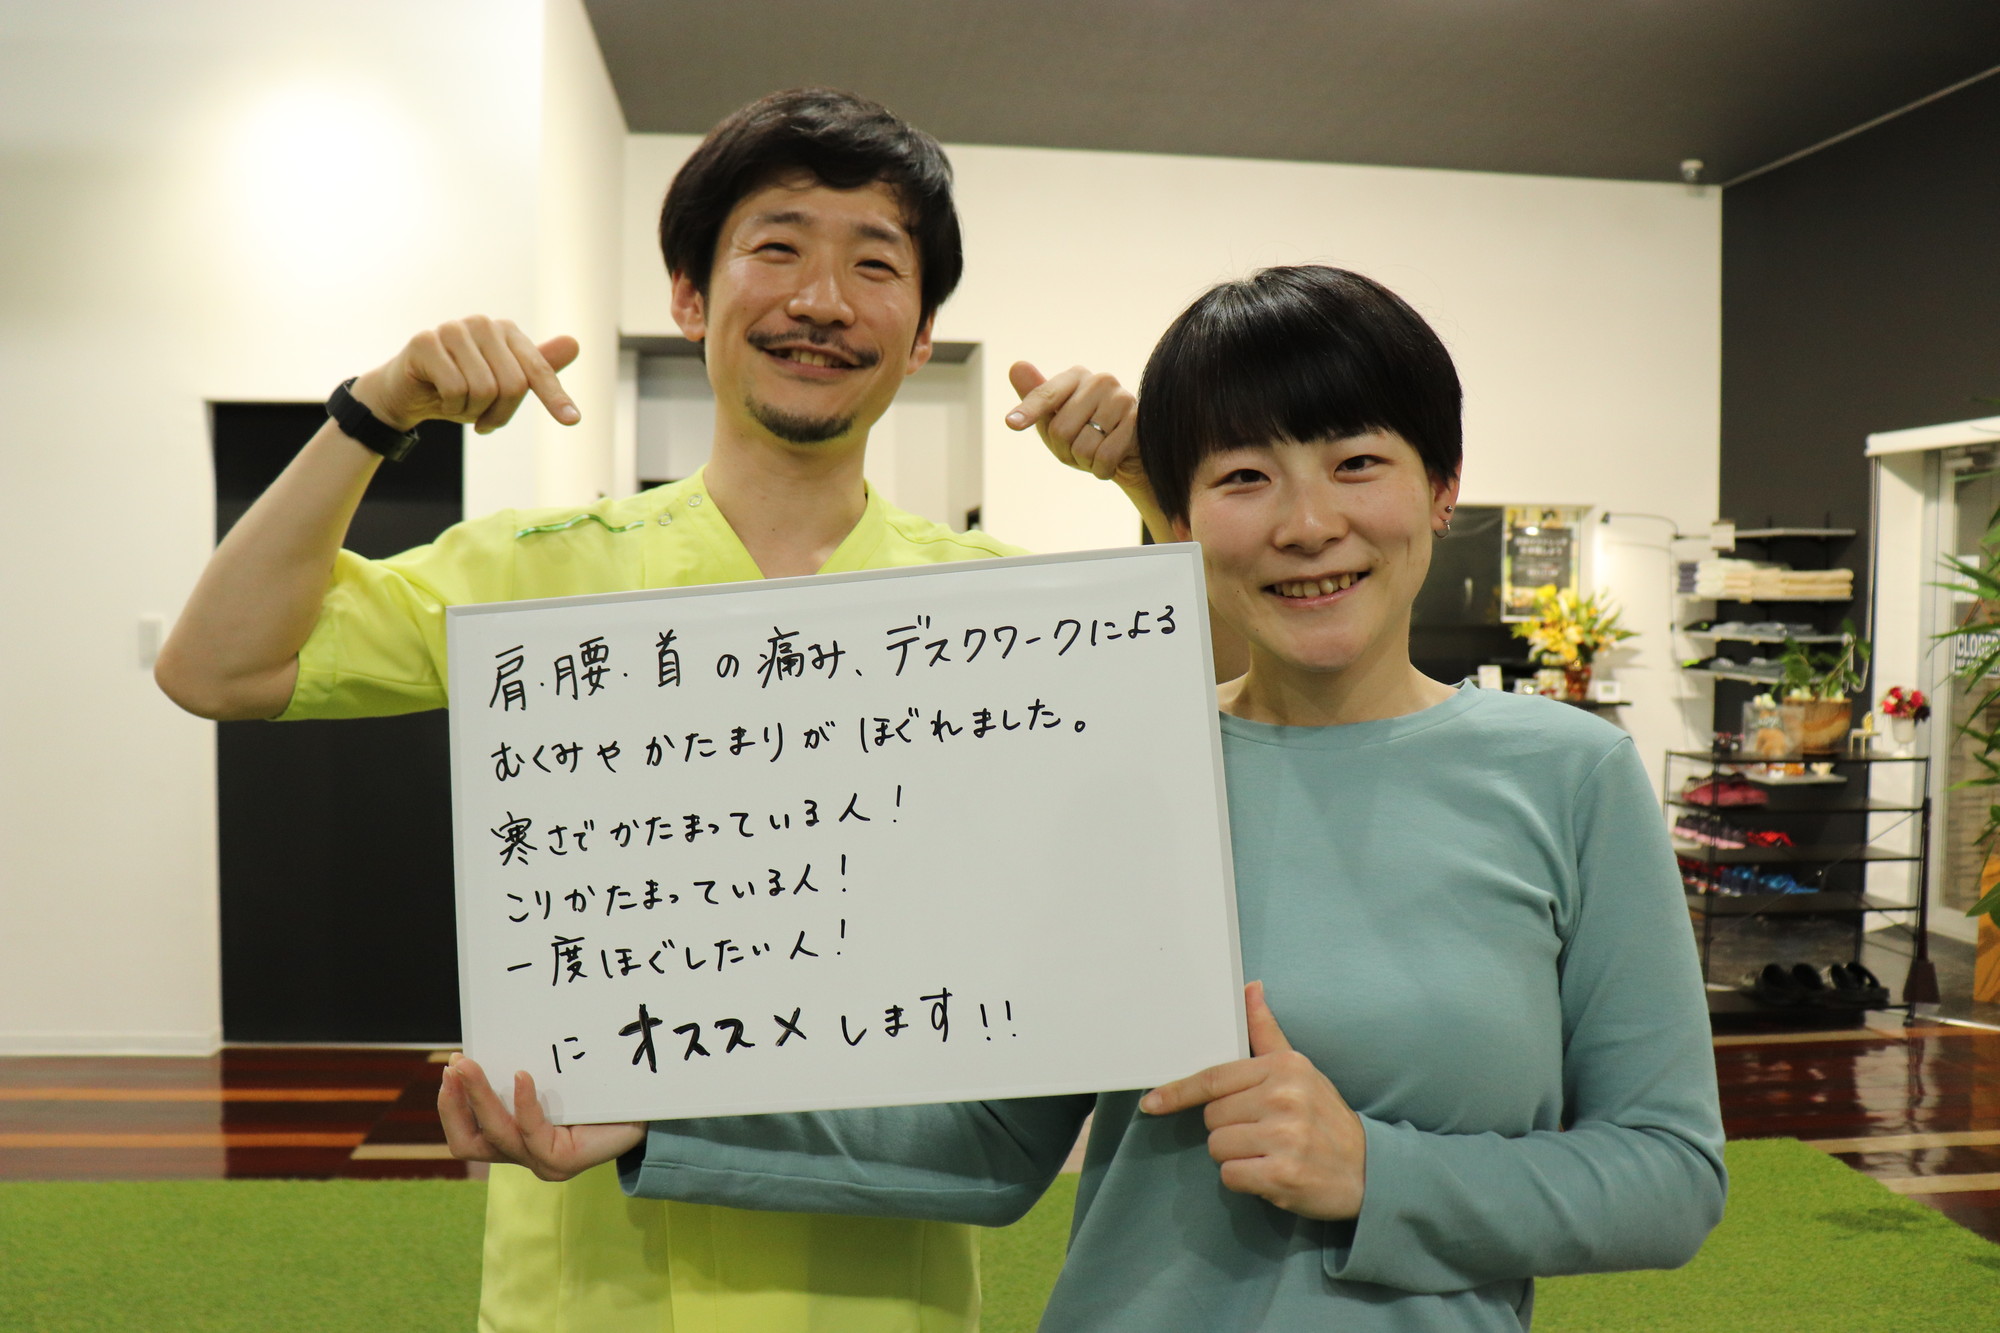 肩・腰・首の痛み、デスクワークによる
むくみやかたまりがほぐれました。
寒さでかたまっている人!
こりかたまっている人!
一度ほぐしたい人!
にオススメします!!
CLOSED